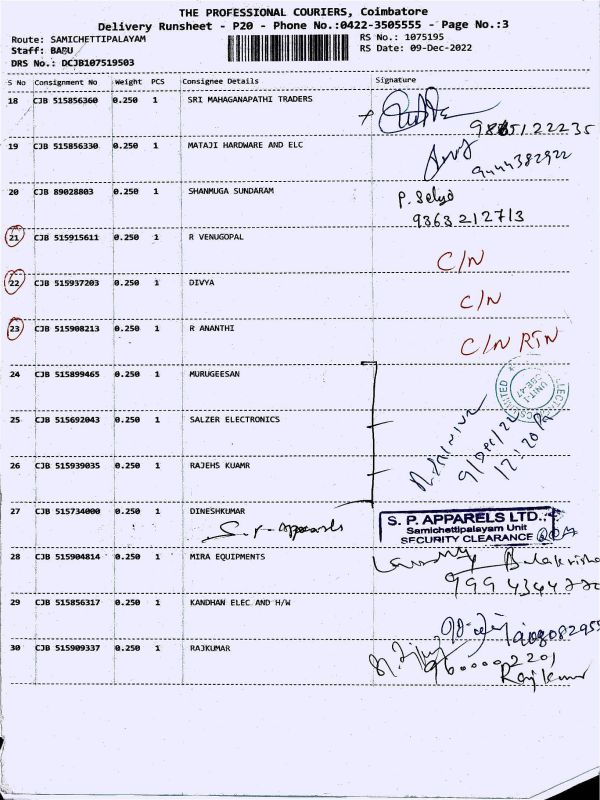 THE PROFESSIONAL COURIERS, Coimbatore
Delivery Runsheet - P20 - Phone No.:0422-3505555 - Page No.:3
Route: SAMICHETTIPALAYAM
RS No.: 1075195
Staff: BABU
RS Date: 09-Dec-2022
DRS No.: DCJB107519503
S No Consignment No Weight PCS Consignee Details Signature
18 CJB 515856360 0.250 1 SRI MAHAGANAPATHI TRADERS
19 CJB 515856330 0.250 1 MATAJI HARDWARE AND ELC
9444382922
20 CJB 89028803 0.250 1 SHANMUGA SUNDARAM P. Selva
9363212713
21 CJB 515915611 0.250 1 R VENUGOPAL C/N
22 CJB 515937203 0.250 1 DIVYA C/N
23 CJB 515908213 0.250 1 R ANANTHI C/N RTN
24 CJB 515899465 0.250 1 MURUGEESAN
UNIT-1
25 CJB 515692043 0.250 1 SALZER ELECTRONICS
9/Dec/22
12:20
26 CJB 515939035 0.250 1 RAJEHS KUAMR
27 CJB 515734000 0.250 1 DINESHKUMAR
S.P. Apparels
S. P. APPARELS LTD.,
Samichettipalayam Unit
SECURITY CLEARANCE
28 CJB 515904814 0.250 1 MIRA EQUIPMENTS
29 CJB 515856317 0.250 1 KANDHAN ELEC AND H/W
30 CJB 515909337 0.250 1 RAJKUMAR
9600002201
Rajkumar